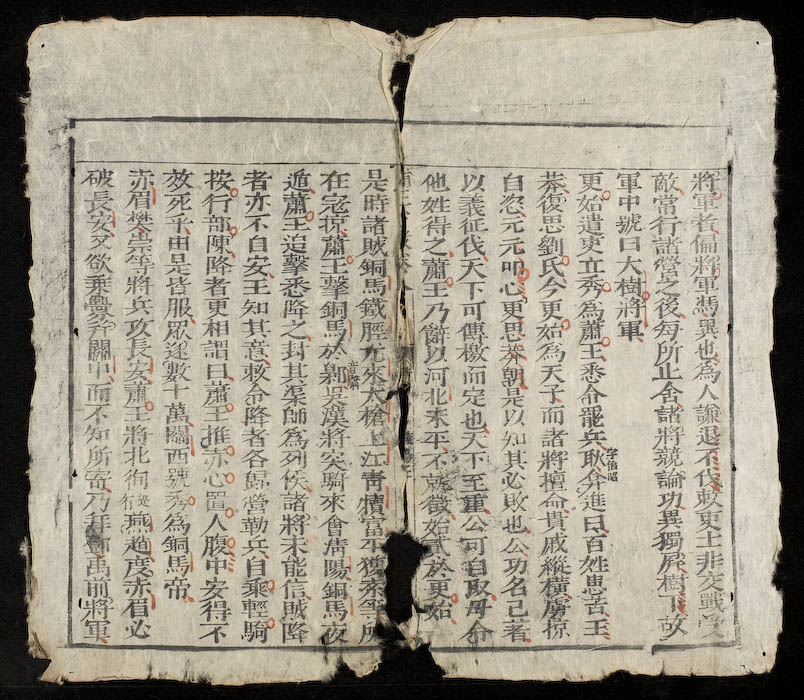 將軍者偏將軍馮異也為人謙退不伐敕吏士非交戰受
敵常行諸營之後每所止舍諸將競論功異獨屏樹下故
軍中號曰大樹將軍
更始遣吏立秀為蕭王悉令罷兵耿弇字伯昭進曰百姓患苦王
莽復思劉氏今更始為天子而諸將擅命貴戚縱橫虜掠
自恣元元叩心更思莽朝是以知其必敗也公功名已著
以義征伐天下可傳檄而定也天下至重公可自取毋令
他姓得之蕭王乃辭以河北未平不就徵始貳於更始
是時諸賊銅馬鐵脛尤來大槍上江青犢富平獲索等所
在寇掠蕭王擊銅馬於鄡音梟吳漢將突騎來會清陽銅馬夜
遁蕭王追擊悉降之封其渠帥為列侯諸將未能信賊降
者亦不自安王知其意敕令降者各歸營勒兵自乘輕騎
按行部陳降者更相謂曰蕭王推赤心置人腹中安得不
效死乎由是皆服眾遂數十萬關西號秀為銅馬帝
赤眉樊崇等將兵攻長安蕭王將北徇燕趙度赤眉必
破長安又欲乘釁并關中而不知所寄乃拜鄧禹前將軍